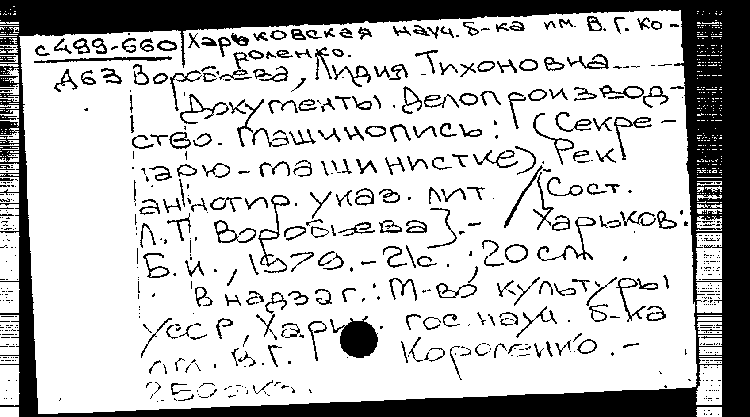 с499-660 Харьковская науч. б-ка им. В. Г. Ко-
роленко.
Д63 Воробьева, Лидия Тихоновна
Документы. Делопроизвод-
ство. Машинопись: (Секре-
тарю-машинистке). Рек.
аннотир. указ. лит. / [Сост.
Л.Т. Воробьева]. - Харьков:
Б.и., 1979. - 21с.; 20 см.
В надзаг.: М-во культуры
УССР, Харьк. гос. науч. б-ка
им. В.Г. Короленко. -
250 экз.